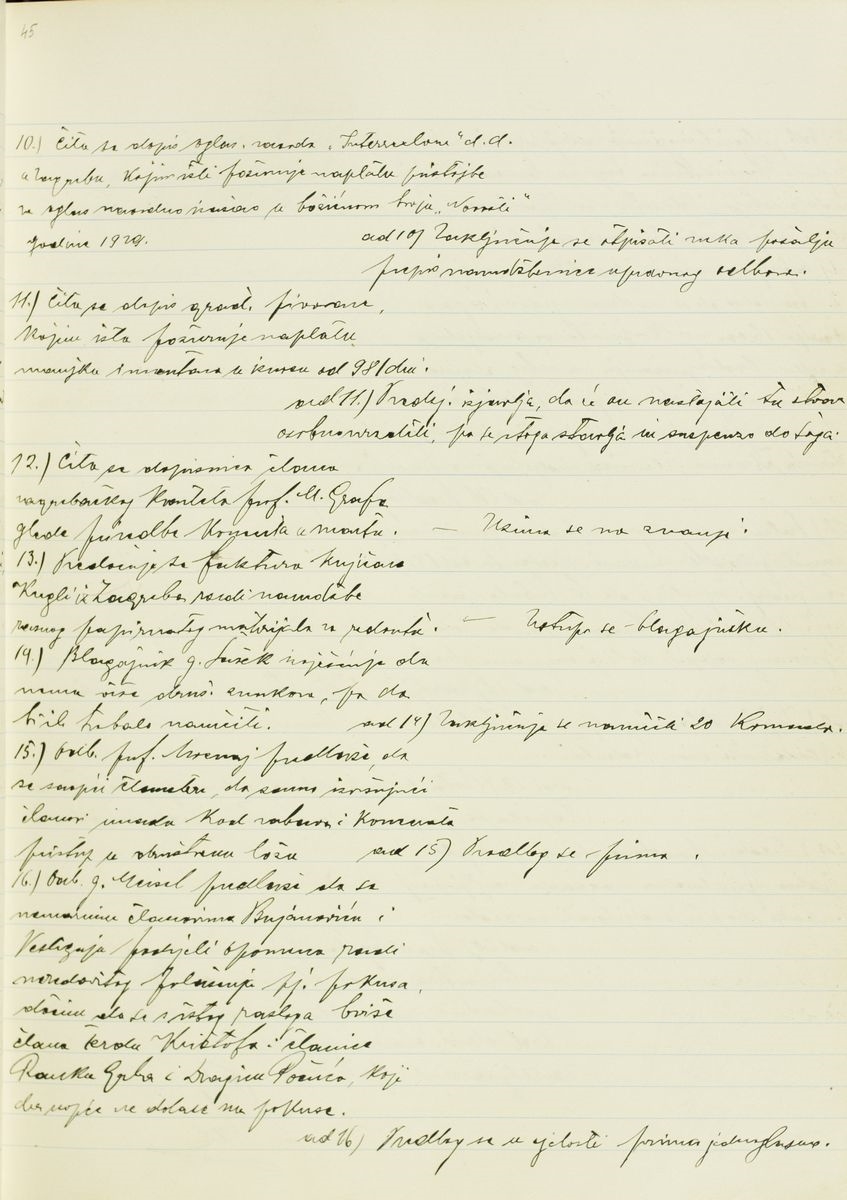 45
10.) Čita se dopis oglas. zavoda „Interreklam" d.d.
u Zagrebu, kojim isti požuruje naplatu pristojbe
za oglas naručno izašao u božićnom broju „Novosti"
godine 1929.
ad 10) Zaključuje se otpisati neka pošalju
prepis narudžbenice upravnog odbora.
11.) Čita se dopis grad. pivovare,
kojim ista požuruje naplatu
manjka inventara u iznosu od 98/din.
ad 11.) Predsj. izjavlja, da će on nastojati tu stvar
osobno urediti, pa se stoga stavlja in suspenzo do toga.
12.) Čita se dopisnica člana
zagrebačkog kvarteta prof. M. Grafa
glede priredbe koncerta u martu. — Uzima se na znanje.
13.) Predočuje se faktura knjižara
Kugli iz Zagreba radi narudžbe
raznog papirnatog materijala za redoutu. — Ustupa se blagajniku.
14.) Blagajnik g. Sušek izvješćuje da
nema više druš. znakova, pa da
bi ih trebalo naručiti.
ad 14) Zaključuje se naručiti 20 komada.
15.) Odb. prof. predlaže, da
se saopći članstvu, da samo izvršujući
članovi imadu kod zabava i koncerata
pristup u društvenu ložu
ad 15) Predlog se prima.
16.) Odb. g. Meisel predlaže da se
nemarnim članovima Bujanoviću i
podijeli opomena radi
neredovitog polaženja pj. pokusa,
dočim da se s istog razloga briše
člana Ferdu Krištofa i članice
Ranku Grba i Draginu koji
da uopće ne dolaze na pokuse.
ad 16) Predlog se u cjelosti prima jednoglasno.